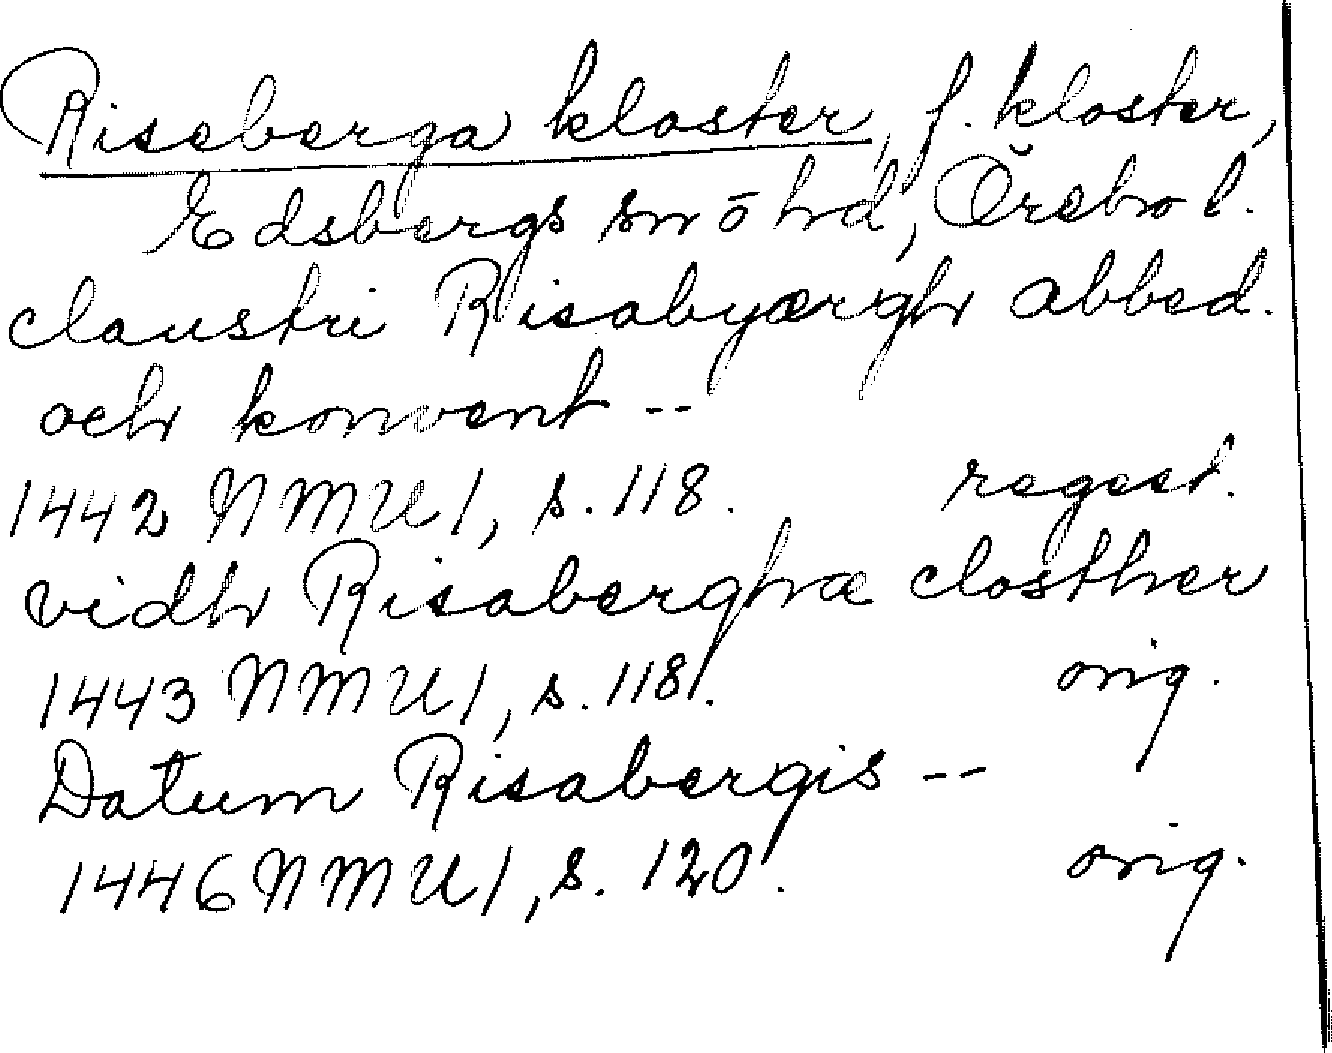 Riseberga kloster, f. kloster,
Edsbergs sn ö hd, Örebro l.
claustri Risabyærgh abbed.
och konvent --
1442 NMU 1, s. 118. regest.
vidh Risaberghæ closther
1443 NMU 1, s. 118. orig.
Datum Risabergis --
1446 NMU 1, s. 120. orig.